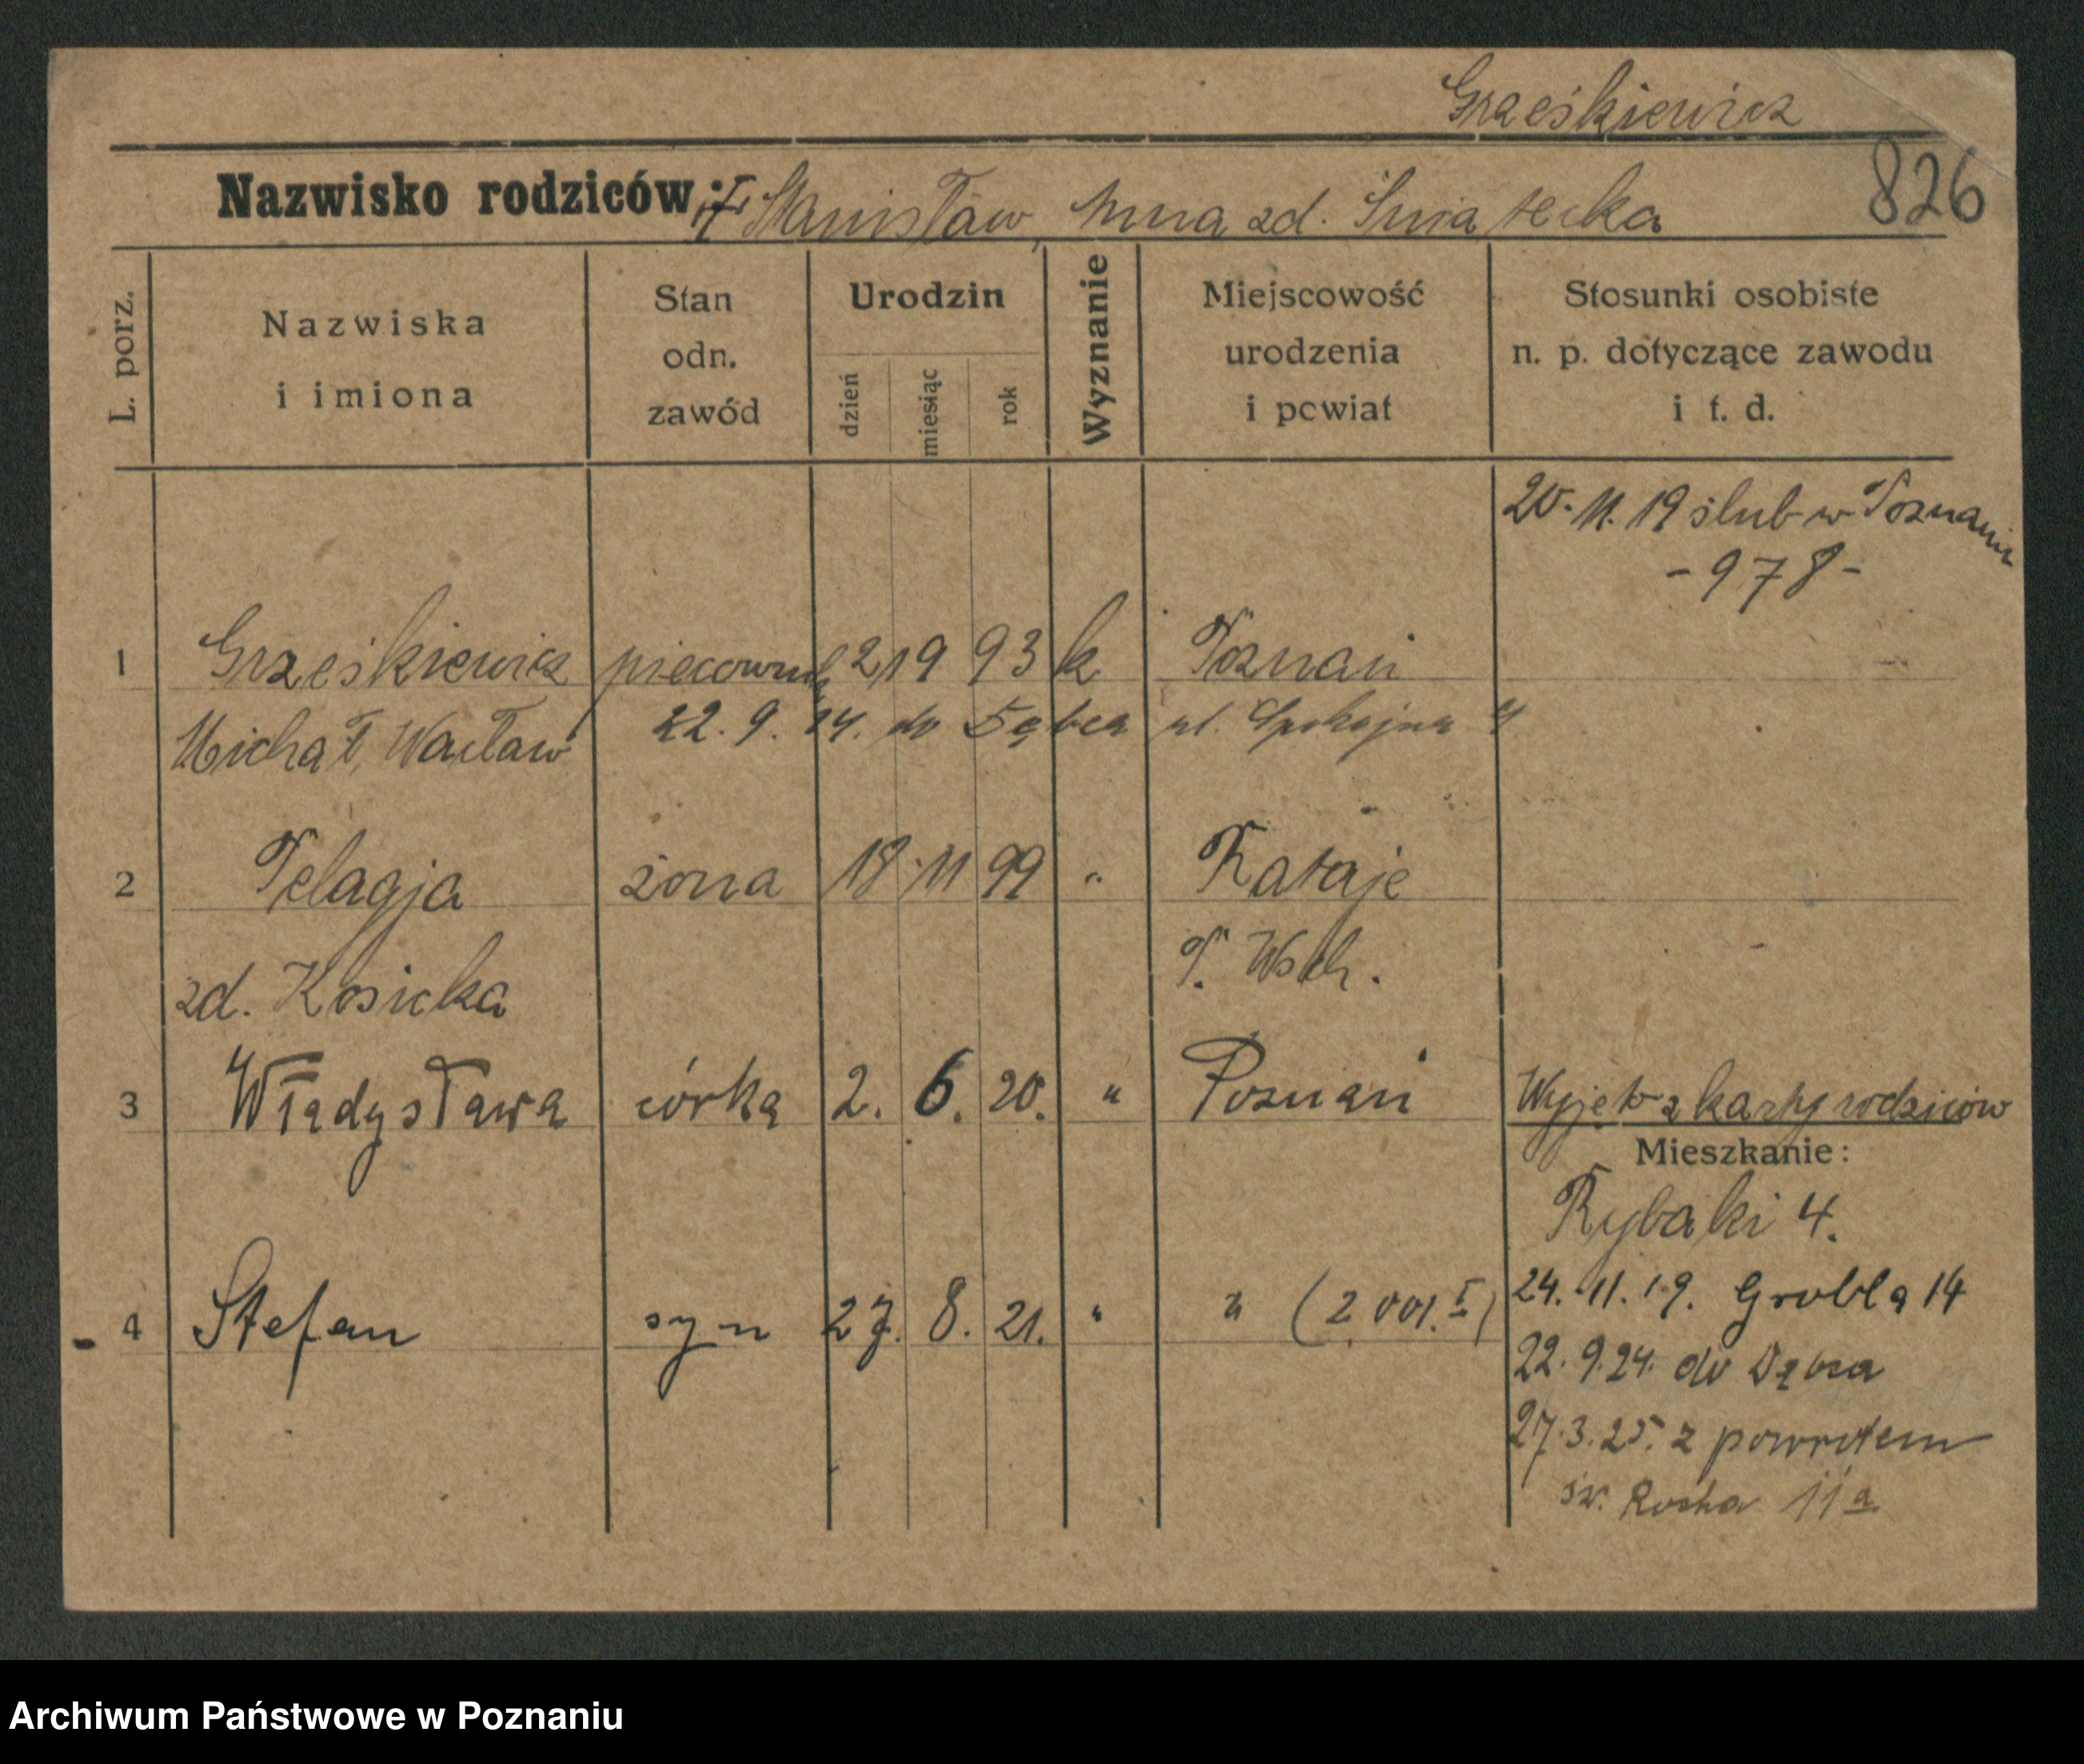 Grześkiewicz
Nazwisko rodziców: † Stanisław, Anna zd. Śniatecka
826
L. porz.
Nazwiska i imiona
Stan odn. zawód
Urodzin
dzień miesiąc rok
Wyznanie
Miejscowość urodzenia i powiat
Stosunki osobiste n. p. dotyczące zawodu i t. d.
20. 11. 19 ślub w Poznaniu
- 978 -
1 Grześkiewicz piecownik 21 9 93 k Poznań
Michał, Wacław 22. 9. 24. do Dębca ul. Spokojna 4
2 Pelagja żona 18 11 99 " Rataje
zd. Kosicka P. Wsch.
3 Władysława córka 2. 6. 20. " Poznań Wyjęto z karty rodziców
Mieszkanie:
Rybaki 4.
4 Stefan syn 27. 8. 21. " " (2001. I) 24. 11. 19. Grobla 14
22. 9. 24. do Dębca
27. 3. 25. z powrotem
św. Rocha 11 a
Archiwum Państwowe w Poznaniu